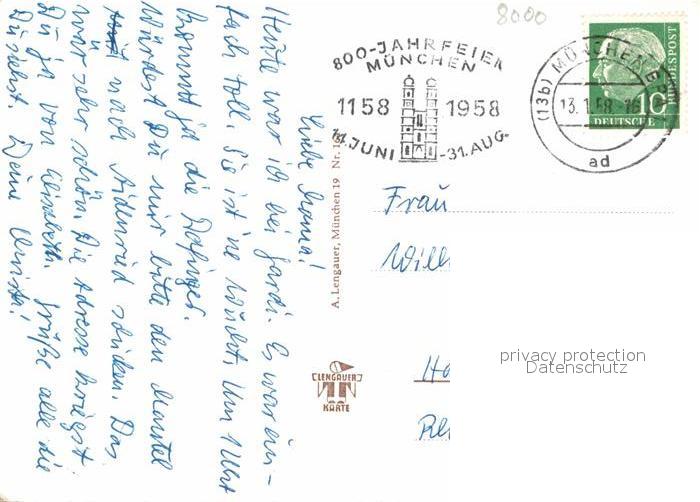 8000
800-JAHRFEIER
MÜNCHEN
1158 1958
14. JUNI -31. AUG.
(13b) MÜNCHEN
13. 1. 58
ad
10
DEUTSCHE
BUNDESPOST
Liebe Mama!
Heute war ich bei Gardi. Es war ein-
fach toll. Sie ist 'ne Wucht. Um 1 Uhr
kommt ja die
Würdest Du mir bitte den Mantel
nach schicken. Das
wär sehr schön. Die Adresse kriegst
Du ja von Elisabeth. Grüße alle die
Du siehst. Deine Christa!
A. Lengauer, München 19 Nr.
Frau
LENGAUER
KARTE
privacy protection
Datenschutz